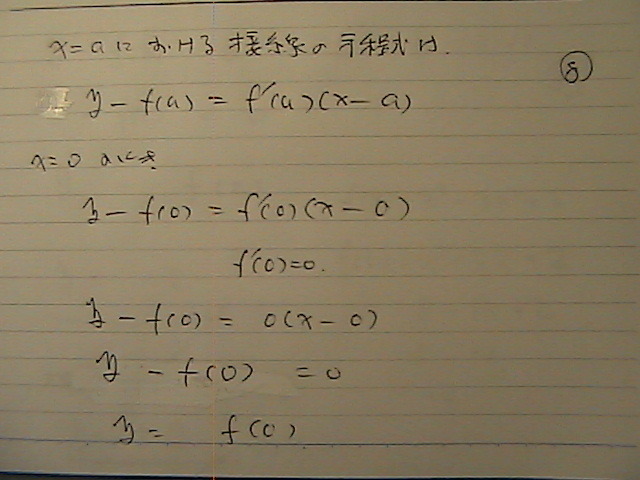 x=aにおける接線の方程式は.
⑧
y-f(a)=f'(a)(x-a)
x=0のとき
y-f(0)=f'(0)(x-0)
f'(0)=0.
y-f(0)=0(x-0)
y-f(0)=0
y=f(0)